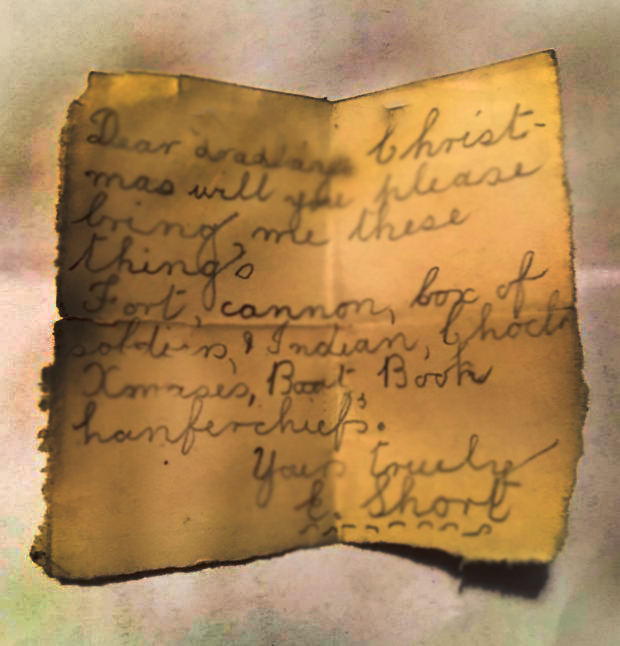 Dear Christ-
mas will you please
bring me these
things
Fort, cannon, box of
soldiers, & Indian,
Xmases, Boat Book
hanferchiefs.
Yours truely
E. Short